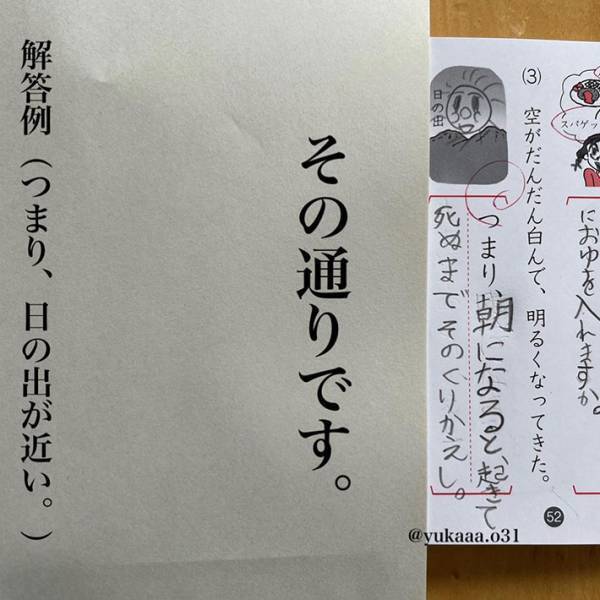 スパゲッ
におゆを入れますか。
(3) 空がだんだん白んで、明るくなってきた。
日の出
つまり、朝になると、起きて
死ぬまでそのくりかえし。
52
その通りです。
解答例（つまり、日の出が近い。）
@yukaaa.o31